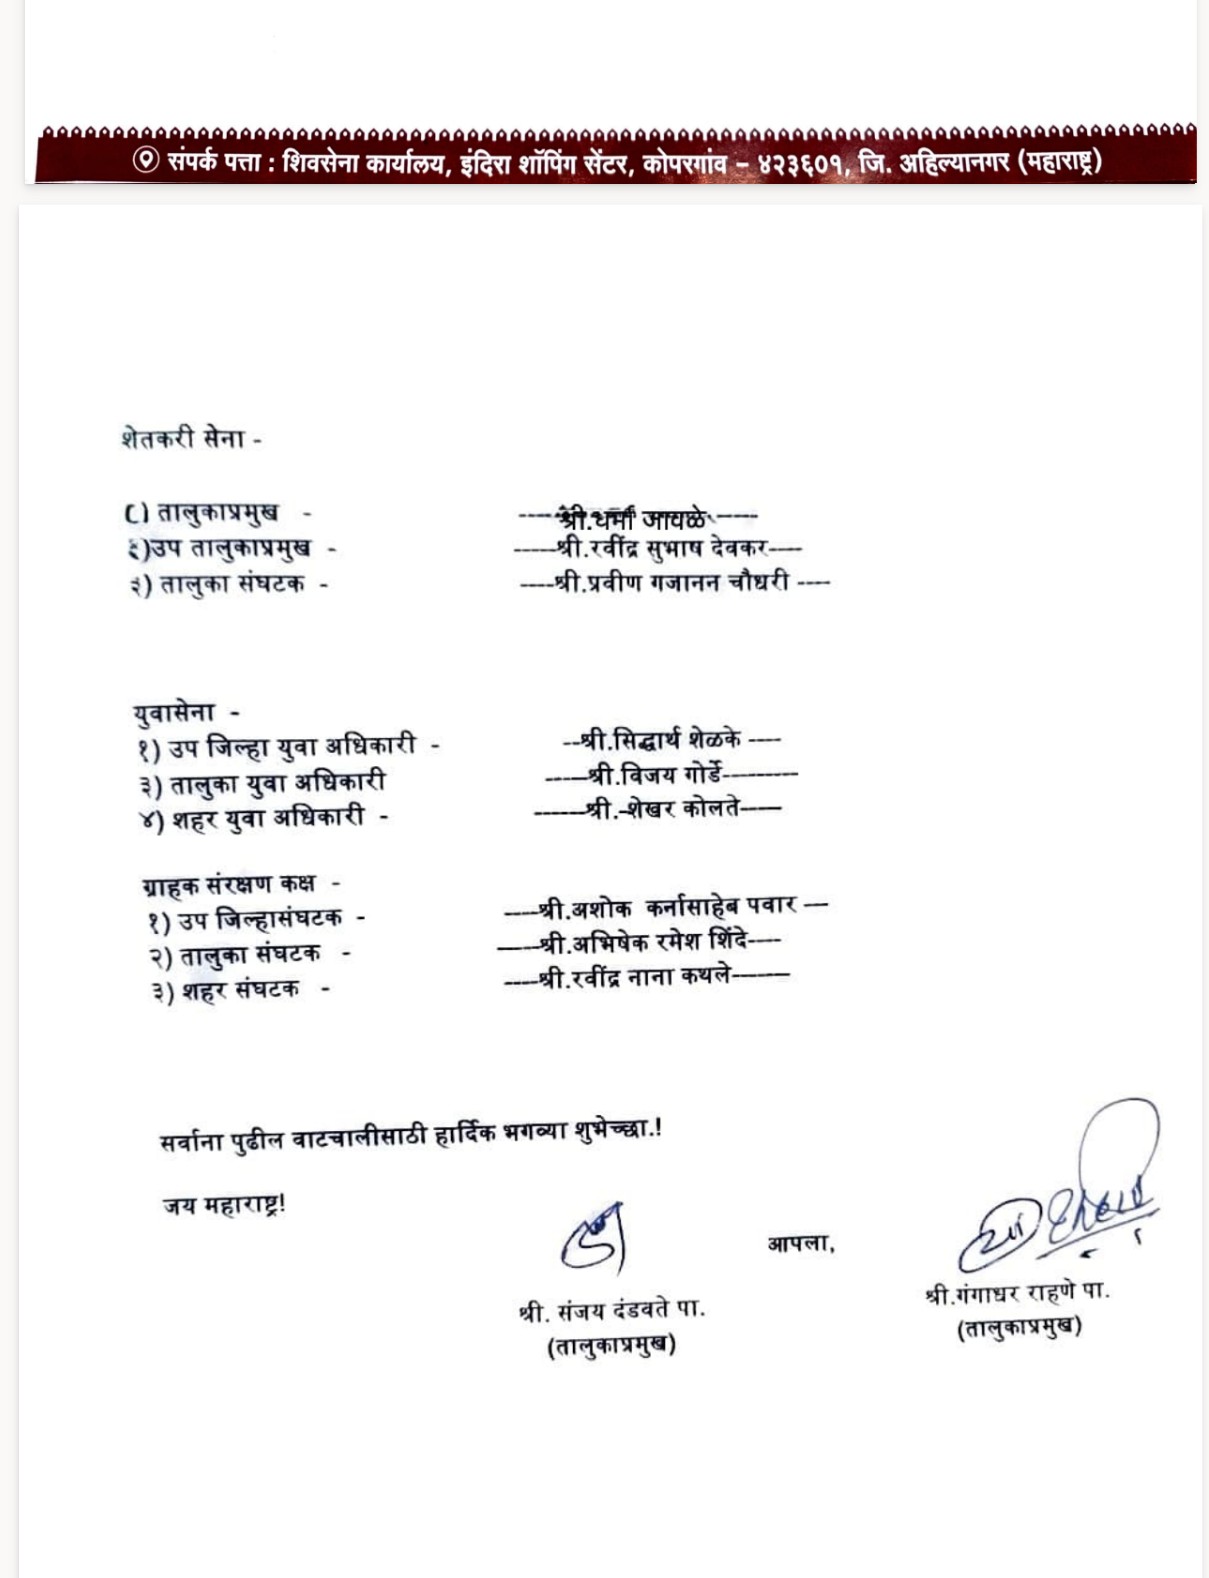 संपर्क पत्ता : शिवसेना कार्यालय, इंदिरा शॉपिंग सेंटर, कोपरगांव – ४२३६०१, जि. अहिल्यानगर (महाराष्ट्र)
शेतकरी सेना -
) तालुकाप्रमुख - -----श्री.धर्मा जावळे-----
)उप तालुकाप्रमुख - -----श्री.रवींद्र सुभाष देवकर----
३) तालुका संघटक - ----श्री.प्रवीण गजानन चौधरी ----
युवासेना -
१) उप जिल्हा युवा अधिकारी - --श्री.सिद्धार्थ शेळके ----
३) तालुका युवा अधिकारी -----श्री.विजय गोर्डे---------
४) शहर युवा अधिकारी - ------श्री.-शेखर कोलते-----
ग्राहक संरक्षण कक्ष -
१) उप जिल्हासंघटक - ----श्री.अशोक कर्नासाहेब पवार ---
२) तालुका संघटक - -----श्री.अभिषेक रमेश शिंदे----
३) शहर संघटक - ----श्री.रवींद्र नाना कथले-------
सर्वाना पुढील वाटचालीसाठी हार्दिक भगव्या शुभेच्छा.!
जय महाराष्ट्र!
आपला,
श्री. संजय दंडवते पा. श्री.गंगाधर राहणे पा.
(तालुकाप्रमुख) (तालुकाप्रमुख)